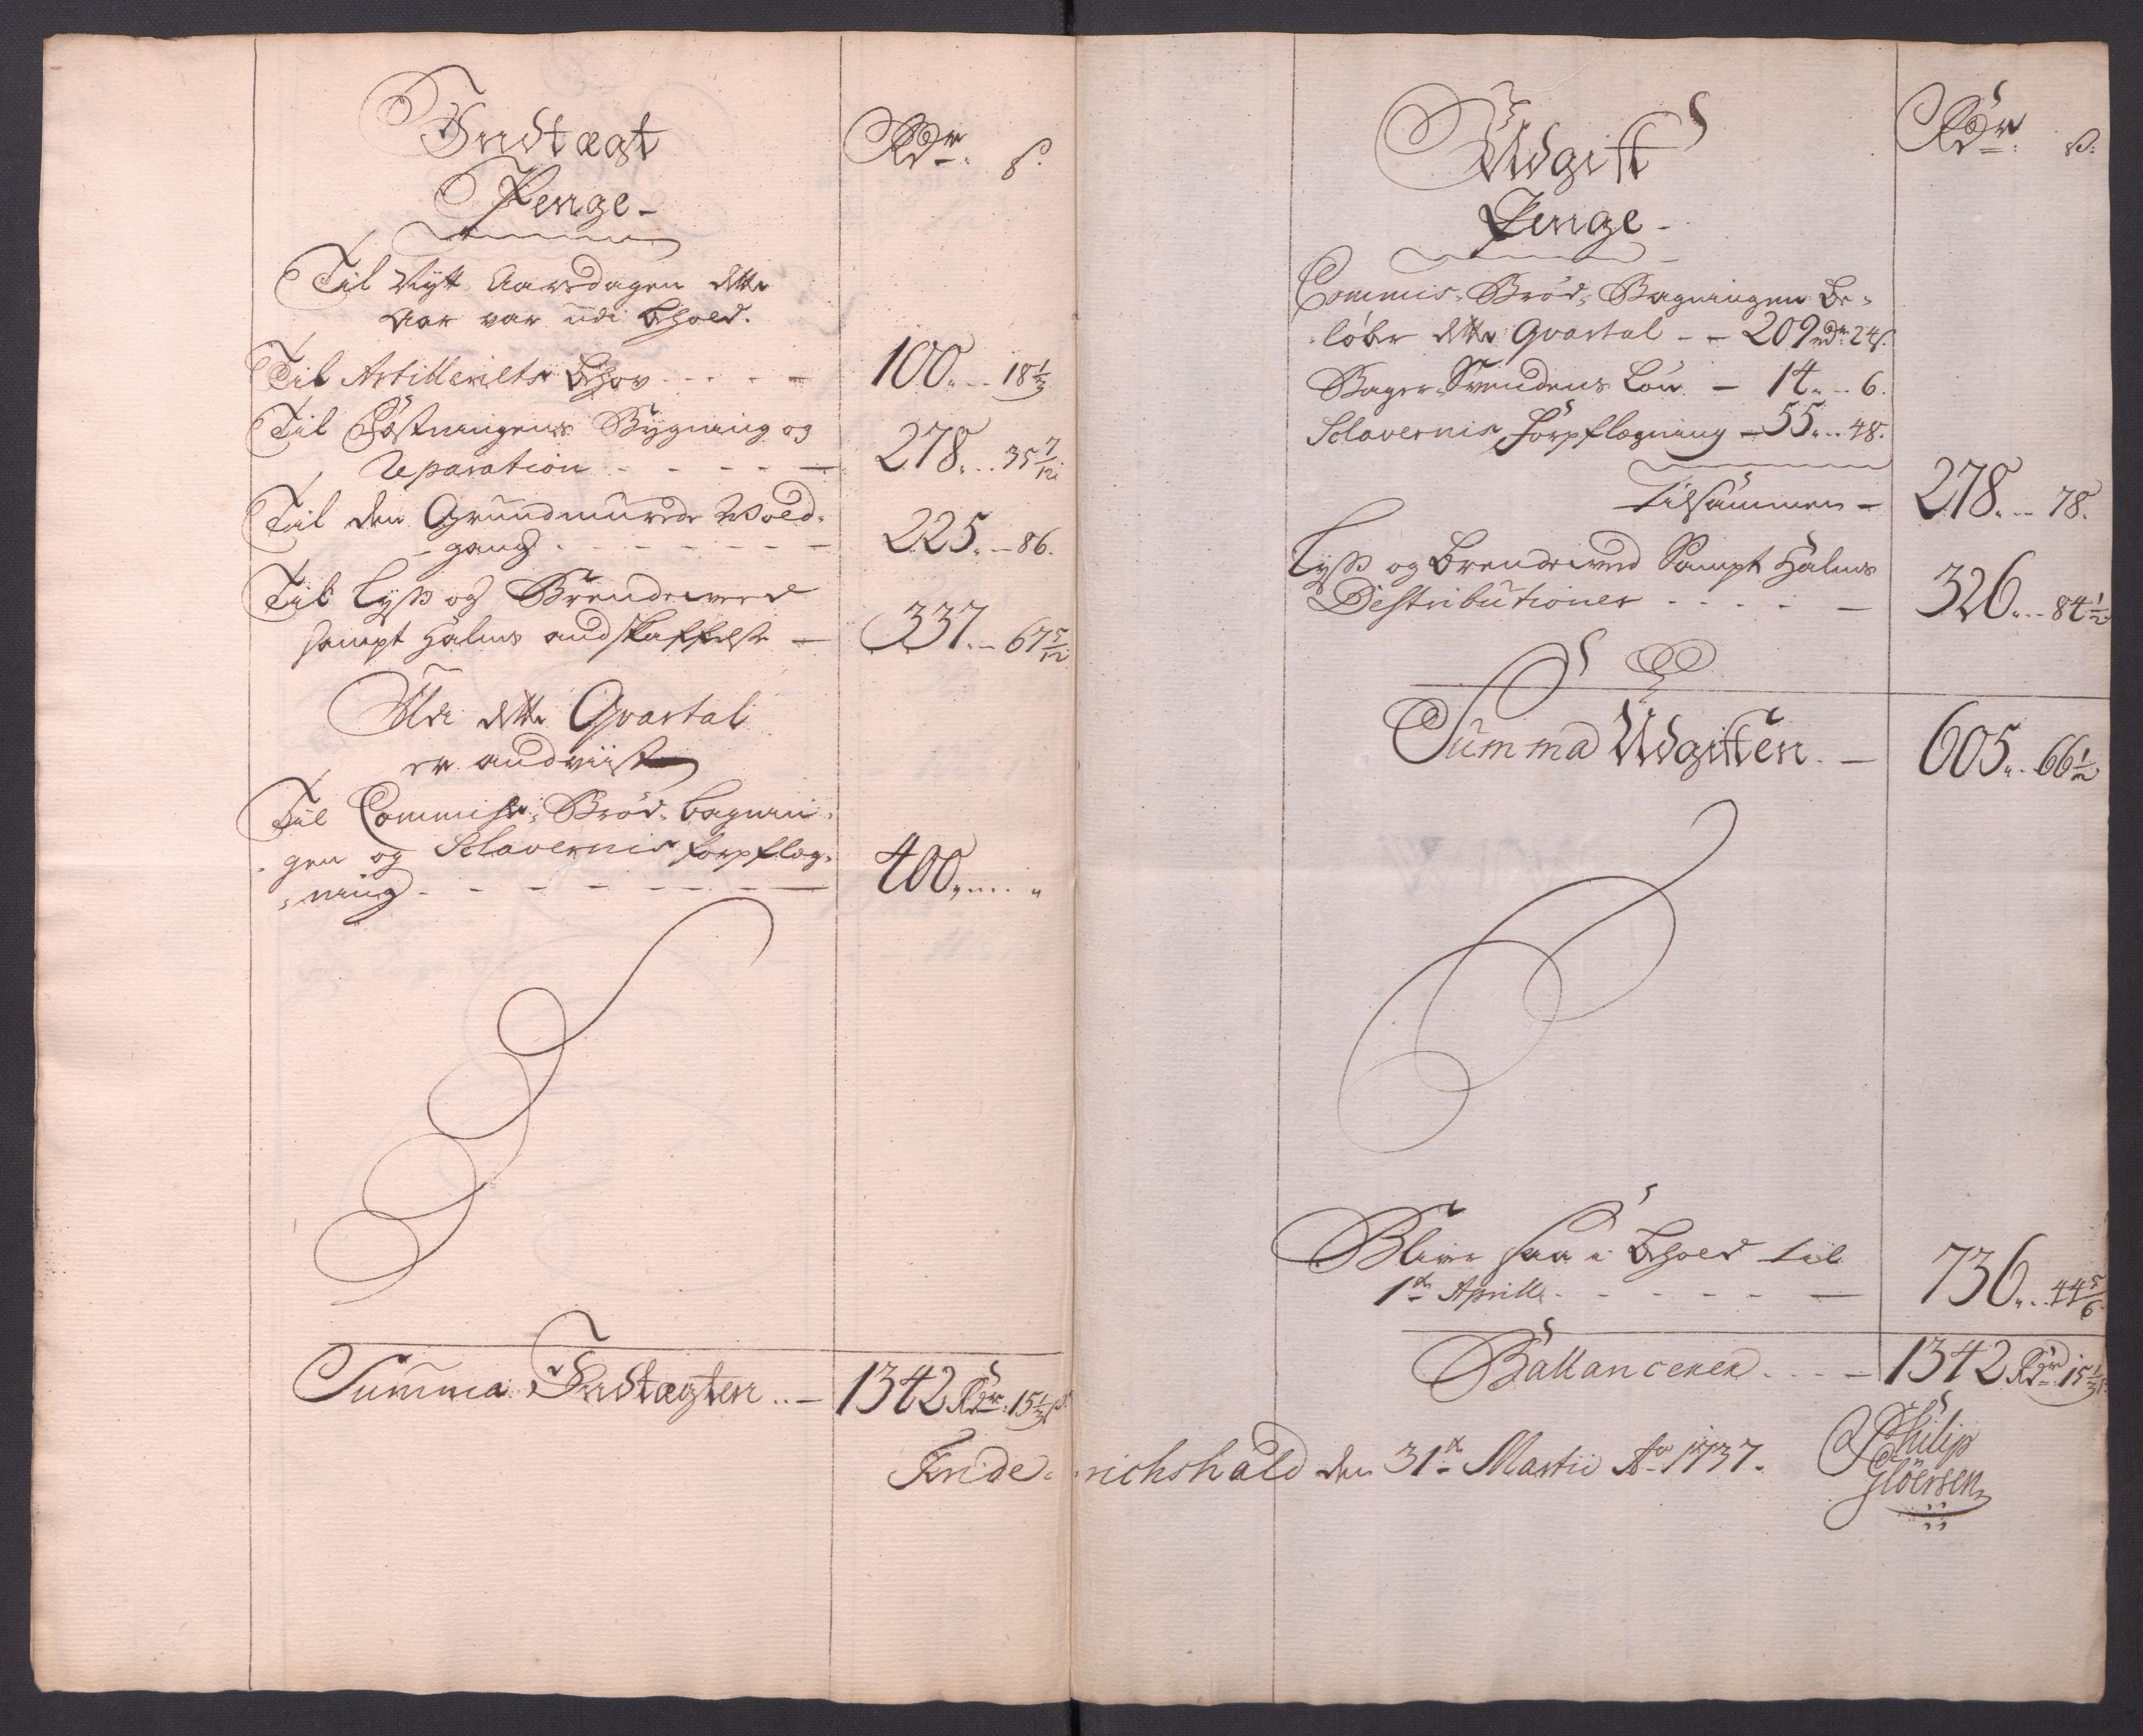 Indtægt
Penge -
Rdr. ß.
Til Nytt Aarsdagen dette
Aar var udi Behold.
Til Artilleriets Behov - - - - 100.. 18 1/3
Til Fæstningens Bygning og
Reparation - - - - 278... 35 7/12
Til den Grundmurede Wold-
gang - - - - - - 225.. 86.
Til Lyß og Brendeweed
sampt Halms andskaffelse - 337.. 67 5/12
Udi dette Qvartal
er andviist
Til Commiss-Brød-bagnin-
gen og Slavernis forpflæg-
ning - - - - - - 400..... "
Summa Indtægten .. - 1342 Rdr. 15 1/3 ß
Udgifft
Penge -
Rdr. ß:
Commis-Brød-Bagningen Be-
løber dette Qvartal - - 209 rdr 24 ß.
Bager-Svendens Løn - 14... 6.
Sclavernis Forpflægning - 55... 48.
Tilsammen - 278... 78.
Lyß og Brendeweed Sampt Halms
Destributioner - - - - 326... 84 1/2
Summa Udgifften. - 605.. 66 1/2
Bliver saa i Behold til
1te Aprilli - - - - - 736... 44 5/6
Ballancerer .... - 1342 Rdr. 15 1/3 ß
Friderichshald den 31te Martii Ao 1737.
Philip
Gloersen